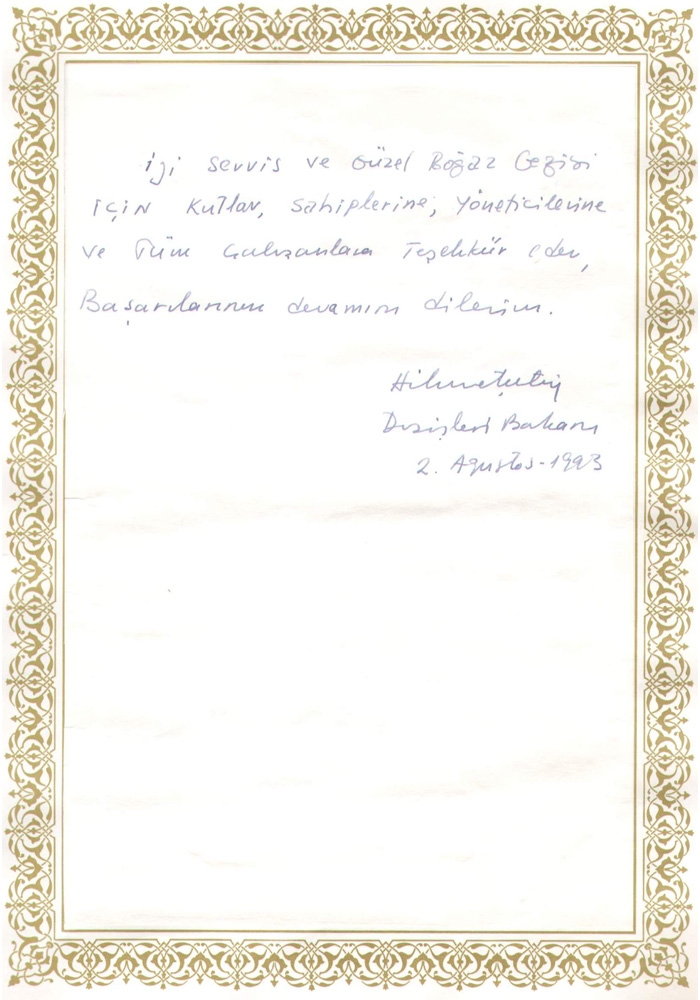 İyi servis ve Güzel Boğaz Gezisi
için kutlar, sahiplerine, yöneticilerine
ve Tüm çalışanlara Teşekkür eder,
Başarılarının devamını dilerim.
Hikmet Çetin
Dışişleri Bakanı
2. Ağustos-1993